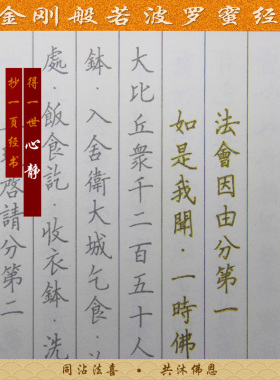 金刚般若波罗蜜经
抄一頁经书
得一世心静
法會因由分第一
如是我聞·一時佛
大比丘衆千二百五十人
鉢·入舍衛大城乞食·
處·飯食訖·收衣鉢·洗
啓請分第二
同沾法喜 · 共沐佛恩